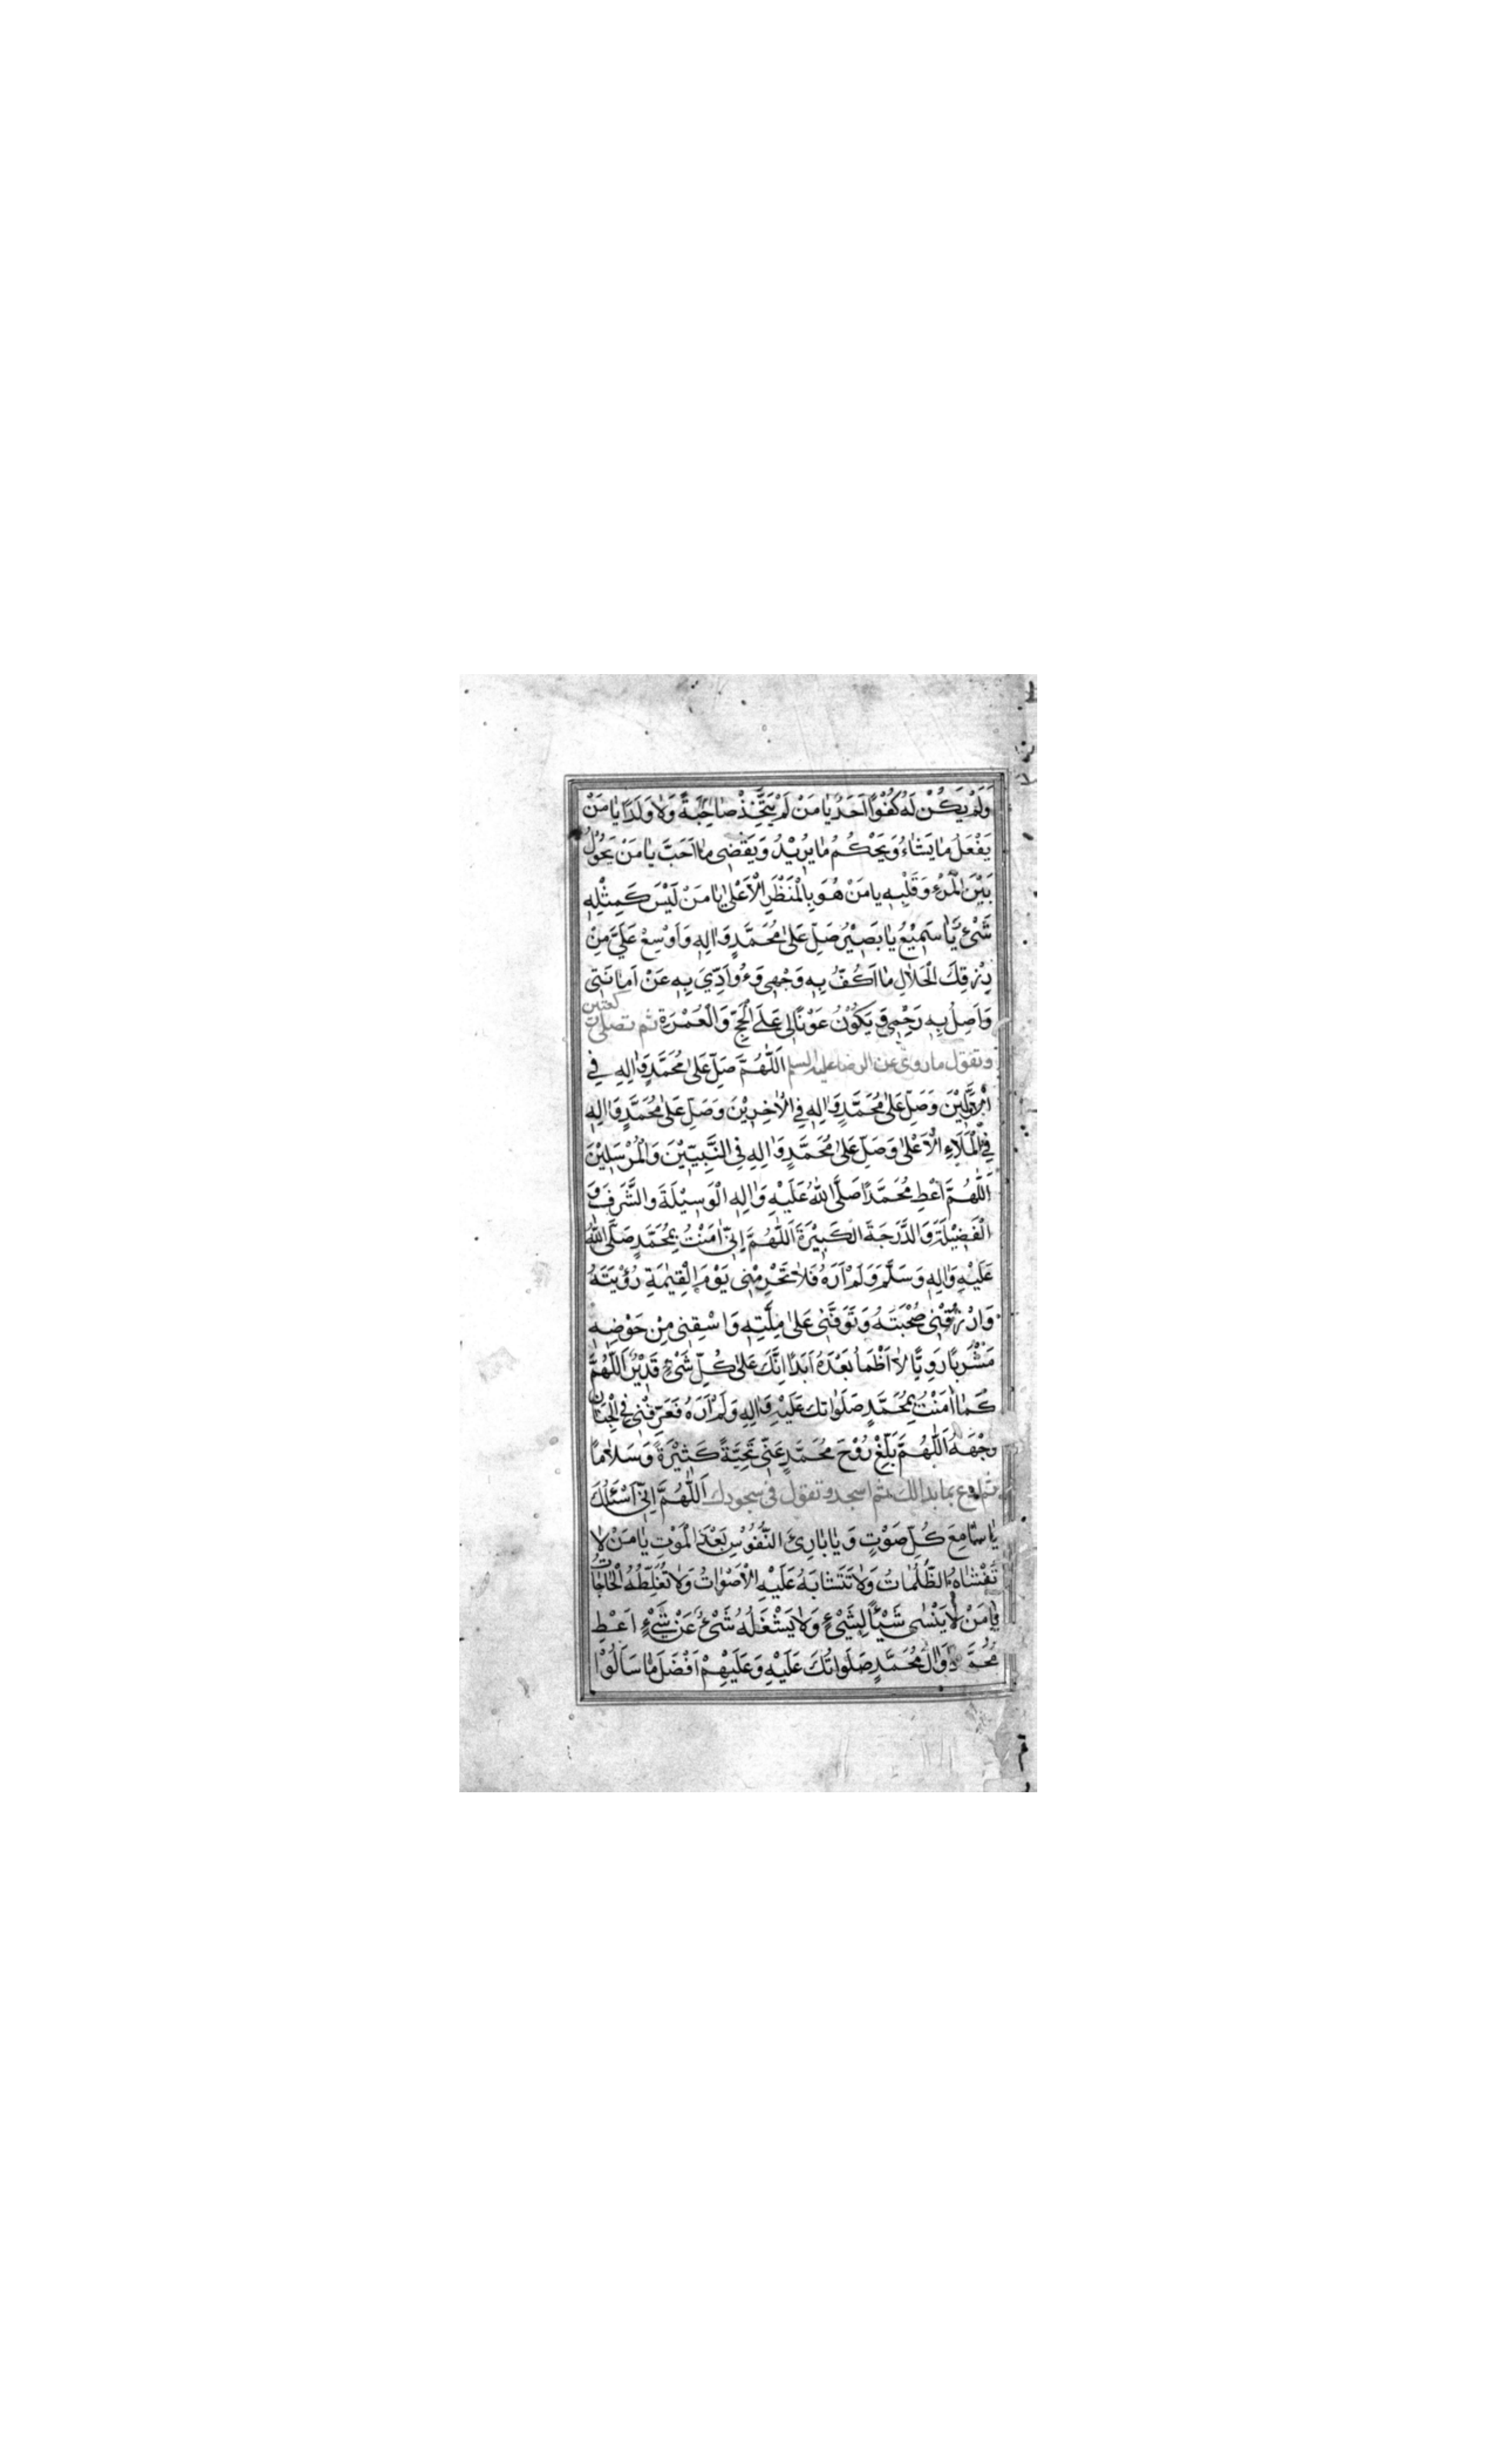 وَلَمْ يَكُنْ لَهُ كُفُوًا اَحَدٌ يٰا مَنْ لَمْ يَتَّخِذْ صٰاحِبَةً وَلٰا وَلَدًا يٰا مَنْ
يَفْعَلُ مٰا يَشٰاءُ وَيَحْكُمُ مٰا يُرِيْدُ وَيَقْضِى مٰا اَحَبَّ يٰا مَنْ يَحُوْلُ
بَيْنَ الْمَرْءِ وَقَلْبِهِ يا مَنْ هُوَ بِالْمَنْظَرِ الْاَعْلىٰ يٰا مَنْ لَيْسَ كَمِثْلِهِ
شَىْءٌ يٰا سَمِيْعُ يٰا بَصِيْرُ صَلِّ عَلىٰ مُحَمَّدٍ وَاٰلِهِ وَاَوْسِعْ عَلَيَّ مِنْ
رِزْقِكَ الْحَلٰالِ مٰا اَكُفُّ بِهِ وَجْهِى وَ اُوَدِّيَ بِهِ عَنْ اَمٰانَتِى
وَاَصِلُ بِهِ رَحِمِى وَيَكُوْنُ عَوْنًا لِى عَلَى الْحَجِّ وَالْعُمْرَةِ ثم تصلى ركعتين
وتقول ما روى عن الرضا عليه السلم اَللّٰهُمَّ صَلِّ عَلىٰ مُحَمَّدٍ وَاٰلِهِ فِى
الْاَوَّلِيْنَ وَصَلِّ عَلىٰ مُحَمَّدٍ وَاٰلِهِ فِى الْاٰخِرِيْنَ وَصَلِّ عَلىٰ مُحَمَّدٍ وَاٰلِهِ
فِى الْمَلَاءِ الْاَعْلىٰ وَصَلِّ عَلىٰ مُحَمَّدٍ وَاٰلِهِ فِى النَّبِيّيْنَ وَالْمُرْسَلِيْنَ
اَللّٰهُمَّ اَعْطِ مُحَمَّدًا صَلَّى اللهُ عَلَيْهِ وَاٰلِهِ الْوَسِيْلَةَ وَالشَّرَفَ وَ
الْفَضِيْلَةَ وَالدَّرَجَةَ الْكَبِيْرَةَ اَللّٰهُمَّ اِنِّى اٰمَنْتُ بِمُحَمَّدٍ صَلَّى اللهُ
عَلَيْهِ وَاٰلِهِ وَسَلَّمَ وَلَمْ اَرَهُ فَلٰا تَحْرِمْنِى يَوْمَ الْقِيٰمَةِ رُؤْيَتَهُ
وَارْزُقْنِى صُحْبَتَهُ وَتَوَفَّنِى عَلىٰ مِلَّتِهِ وَاسْقِنِى مِنْ حَوْضِهِ
مَشْرَبًا رَوِيًّا لٰا اَظْمَأُ بَعْدَهُ اَبَدًا اِنَّكَ عَلىٰ كُلِّ شَىْءٍ قَدِيْرٌ اَللّٰهُمَّ
كَمٰا اٰمَنْتُ بِمُحَمَّدٍ صَلَوٰاتكَ عَلَيْهِ وَاٰلِهِ وَلَمْ اَرَهُ فَعَرِّفْنِى فِى الْجِنٰانِ
وَجْهَهُ اَللّٰهُمَّ بَلِّغْ رُوْحَ مُحَمَّدٍ عَنِّى تَحِيَّةً كَثِيْرَةً وَسَلٰامًا
ثم ادع بما بدا لك ثم اسجد وتقول فى سجودك اَللّٰهُمَّ اِنِّى اَسْئَلُكَ
يٰا سٰامِعَ كُلِّ صَوْتٍ وَ يٰا بٰارِئَ النُّفُوْسِ بَعْدَ الْمَوْتِ يٰا مَنْ لٰا
تَغْشٰاهُ الظُّلُمٰاتُ وَلٰا تَتَشٰابَهُ عَلَيْهِ الْاَصْوٰاتُ وَلٰا تُغَلِّطُهُ الْحٰاجٰاتُ
يٰا مَنْ لٰا يَنْسٰى شَيْئًا لِشَىْءٍ وَلٰا يَشْغَلُهُ شَىْءٌ عَنْ شَىْءٍ اَعْطِ
مُحَمَّدًا وَاٰلَ مُحَمَّدٍ صَلَوٰاتُكَ عَلَيْهِ وَعَلَيْهِمْ اَفْضَلَ مٰا سَاَلُوْا